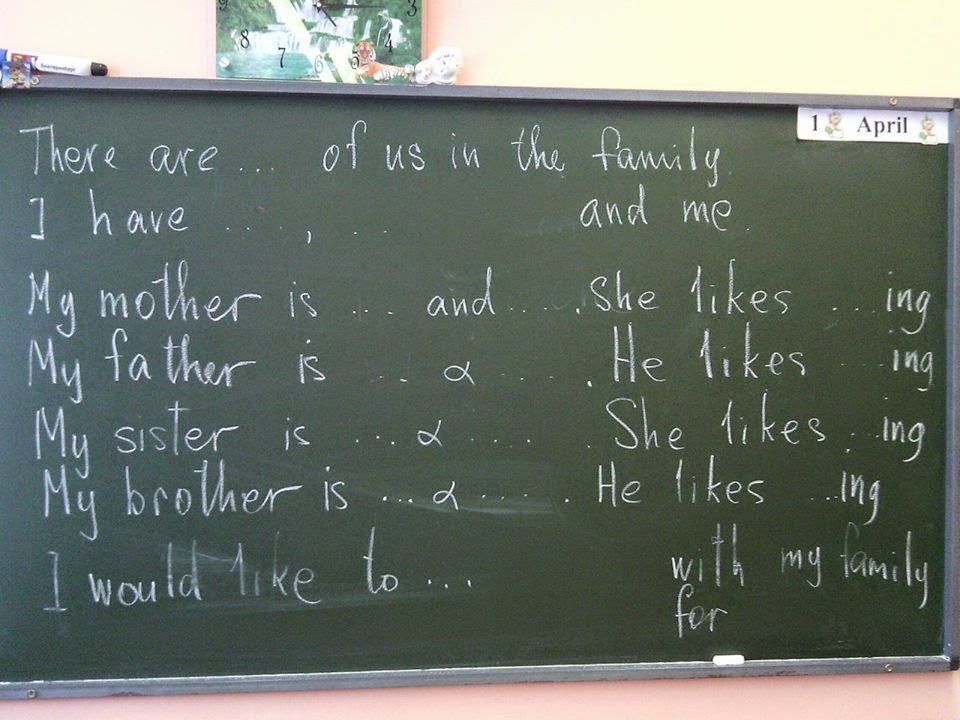 9 3
8 4
7 6 5
1 April
There are ... of us in the family.
I have ...., ... and me.
My mother is ... and ..... She likes ...ing
My father is ... & ..... He likes ...ing
My sister is ... & ..... She likes ...ing
My brother is ... & ..... He likes ...ing
I would like to ... with my family
for